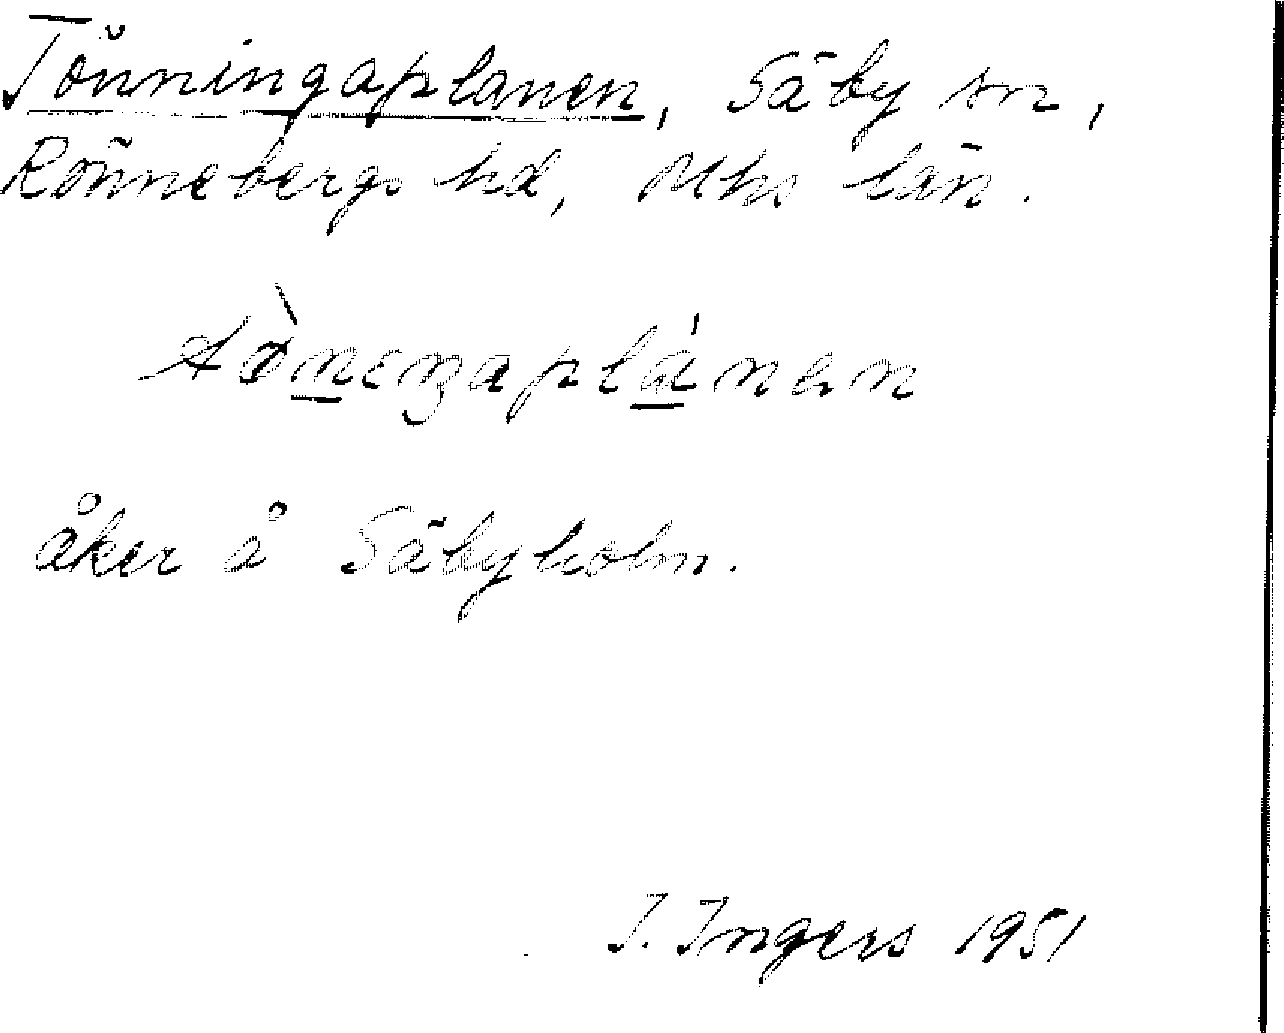 Tönningaplanen, Säby sn,
Rönnebergs hd, Mhs län.
åker å Säbyholm.
I. Ingers 1951